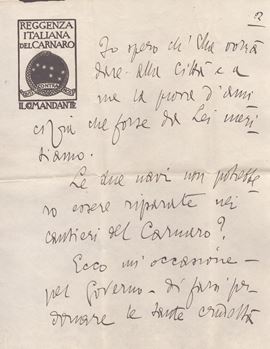 REGGENZA
ITALIANA
DEL CARNARO
IL COMANDANTE
2
Io spero ch'Ella vorrà
dare alla Città e a
me la prova d'ami
cizia che forse da Lei meri
tiamo.
Le due navi non potrebbe
ro essere riparate nei
cantieri del Carnaro?
Ecco un'occasione –
pel Governo – di farsi per
donare le tante crudeltà